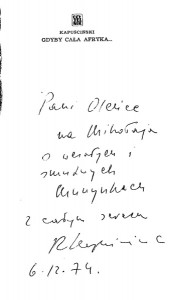 KAPUŚCIŃSKI
GDYBY CAŁA AFRYKA...
Pani Oleńce
na Mikołaja
o wesołych i
smutnych
Murzynkach
z całym sercem
6.12.74.